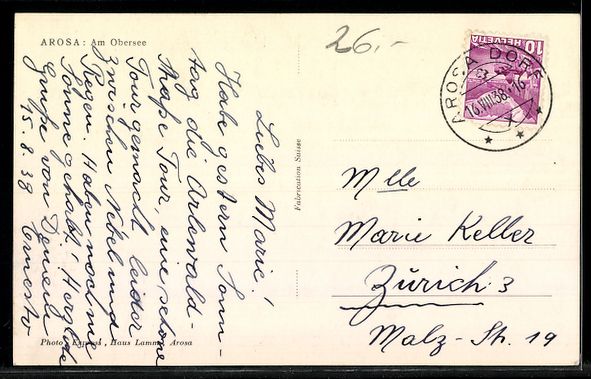 AROSA: Am Obersee
26.-
10 HELVETIA
AROSA DORF
16.VIII.38.-16
X
Fabrication Suisse
Liebes Marie!
Habe gestern Sonn-
tag die Arlewald-
Tour, eine schöne
Tour gemacht leider
zwischen Nebel und
Regen. Haben noch nie
Sonne gehabt! Herzliche
Grüsse von Deinem
Ernesto
15.8.38
Mlle
Marie Keller
Zürich 3
Malz-Str. 19
Photo Express, Haus Lamm, Arosa